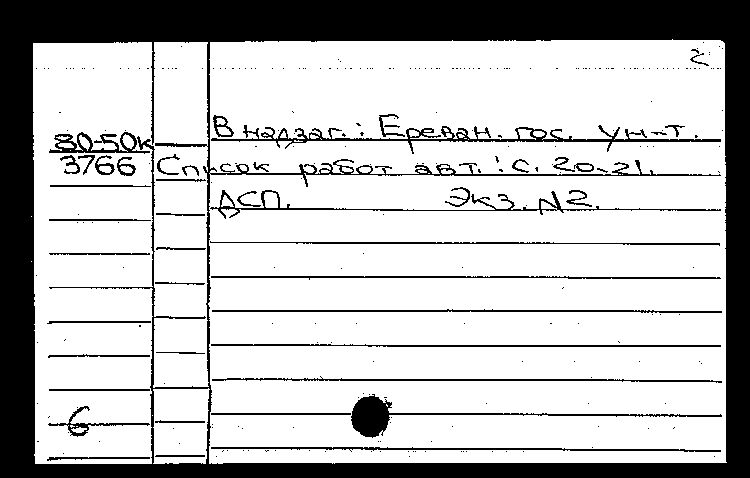 2
В надзаг.: Ереван. гос. ун-т.
80-50к
3766 Список работ авт.: с. 20-21.
ДСП. Экз. N2.
6